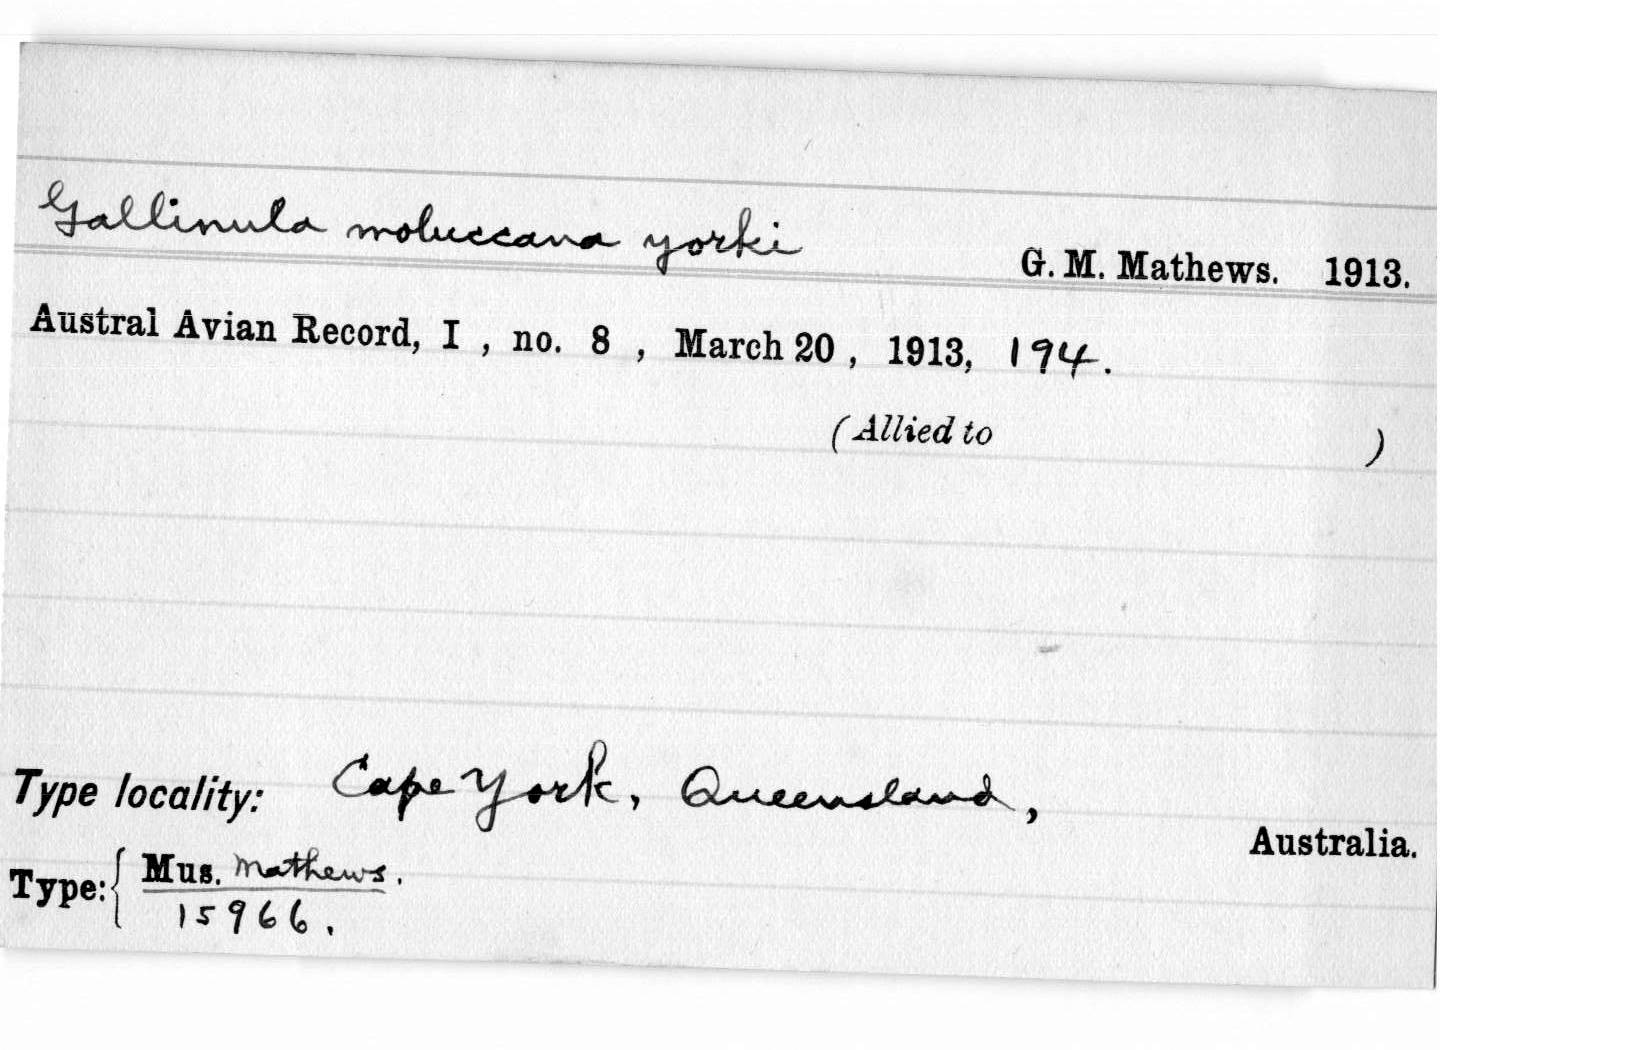 Gallinula moluccana yorki G. M. Mathews. 1913.
Austral Avian Record, I , no. 8 , March 20 , 1913, 194.
(Allied to )
Type locality: Cape York, Queensland,
Australia.
Type: { Mus. Mathews.
15966.